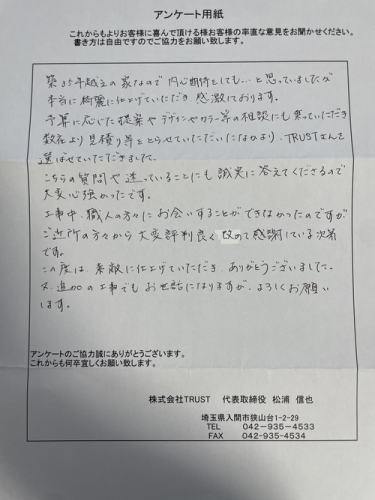 アンケート用紙
これからもよりお客様に喜んで頂ける様お客様の率直な意見をお聞かせください。
書き方は自由ですのでご協力をお願い致します。
築35年越えの家なので内心期待としても…と思っていましたが
本当に綺麗に仕上げていただき感激しております。
予算に応じた提案やデザインやカラー等の相談にも乗っていただき
数社より見積り等とらせていただいたなかより、TRUSTさんを
選ばせていただきました。
こちらの質問や迷っていることにも誠実に答えてくださるので
大変心強かったです。
工事中、職人の方々にお会いすることができなかったのですが
ご近所の方々から大変評判良く改めて感謝している次第
です。
この度は、素敵に仕上げていただき、ありがとうございました。
又、追加の工事でもお世話になりますが、よろしくお願い
します。
アンケートのご協力誠にありがとうございます。
これからも何卒宜しくお願い致します。
株式会社TRUST 代表取締役 松浦 信也
埼玉県入間市狭山台1-2-29
TEL 042-935-4533
FAX 042-935-4534